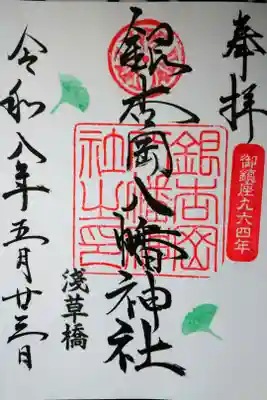 奉拝
御鎮座九六四年
銀杏岡八幡神社
銀杏岡八幡神社之印
浅草橋
令和八年五月廿三日